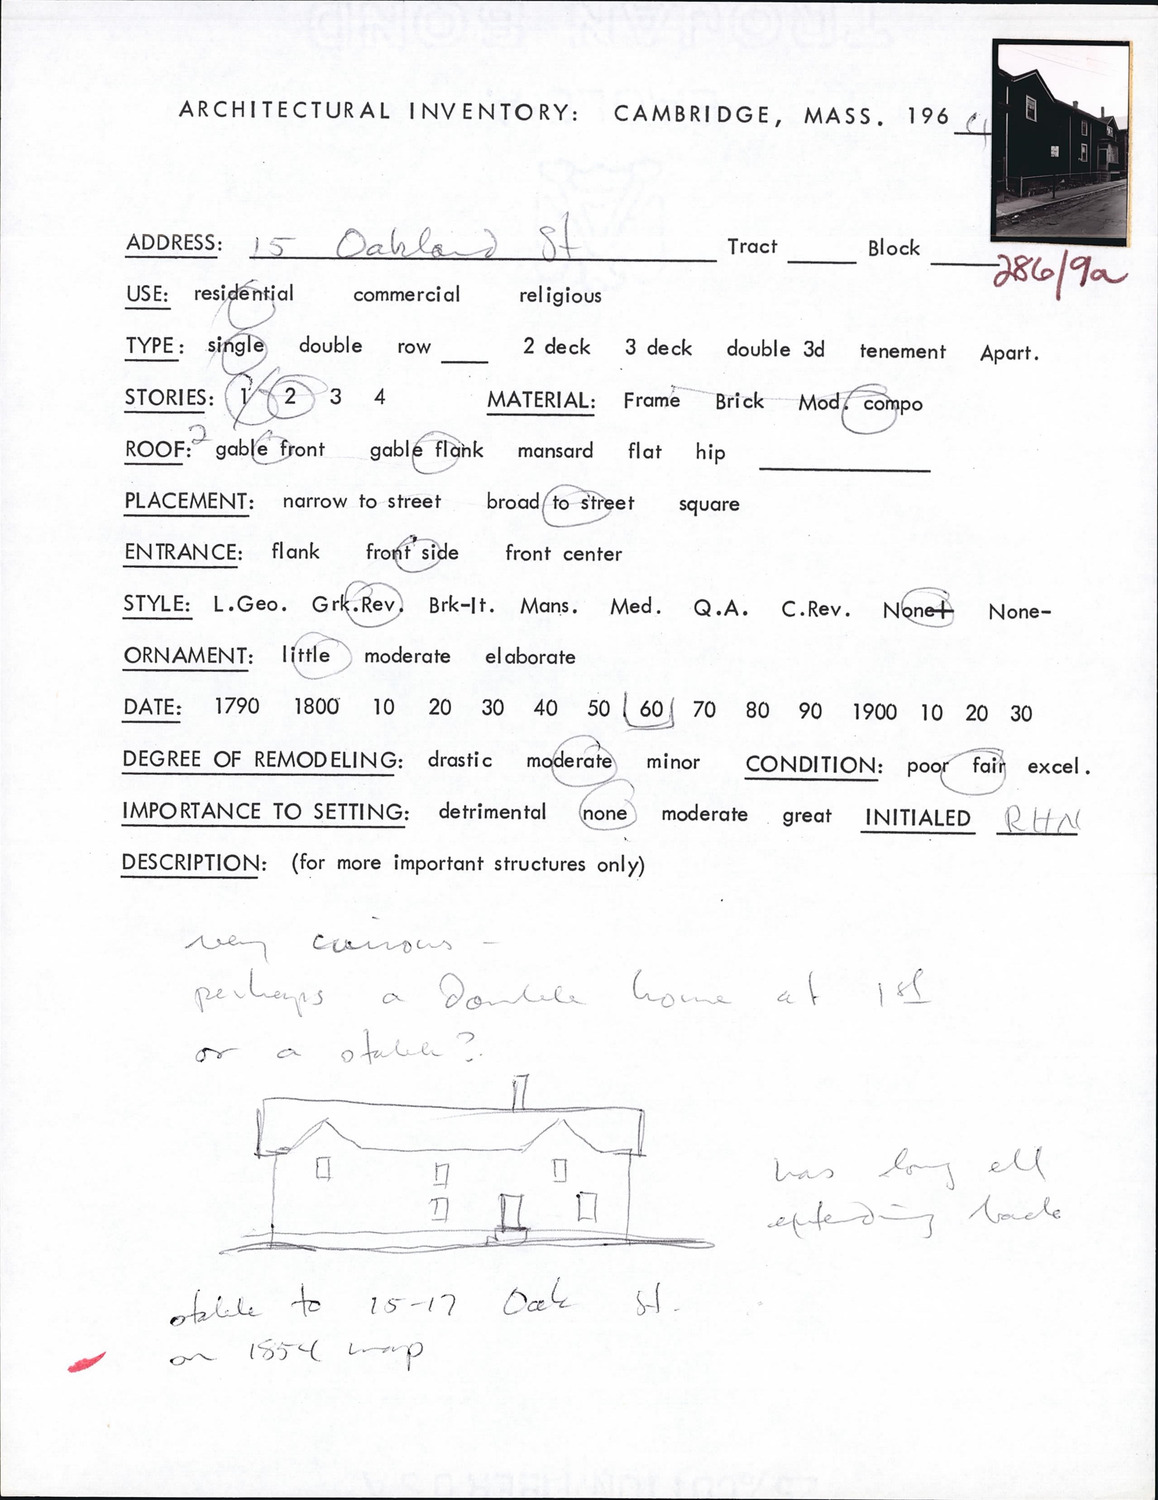 ARCHITECTURAL INVENTORY: CAMBRIDGE, MASS. 196 4
ADDRESS: 15 Oakland St Tract Block
286/9a
USE: residential commercial religious
TYPE: single double row 2 deck 3 deck double 3d tenement Apart.
STORIES: 1 2 3 4 MATERIAL: Frame Brick Mod. compo
ROOF: 2 gable front gable flank mansard flat hip
PLACEMENT: narrow to street broad to street square
ENTRANCE: flank front side front center
STYLE: L.Geo. Grk.Rev. Brk-It. Mans. Med. Q.A. C.Rev. None+ None-
ORNAMENT: little moderate elaborate
DATE: 1790 1800 10 20 30 40 50 60 70 80 90 1900 10 20 30
DEGREE OF REMODELING: drastic moderate minor CONDITION: poor fair excel.
IMPORTANCE TO SETTING: detrimental none moderate great INITIALED RHN
DESCRIPTION: (for more important structures only)
very curious -
perhaps a double house at 1st
or a stable?
has long ell
extending back
stable to 15-17 Oak St.
on 1854 map